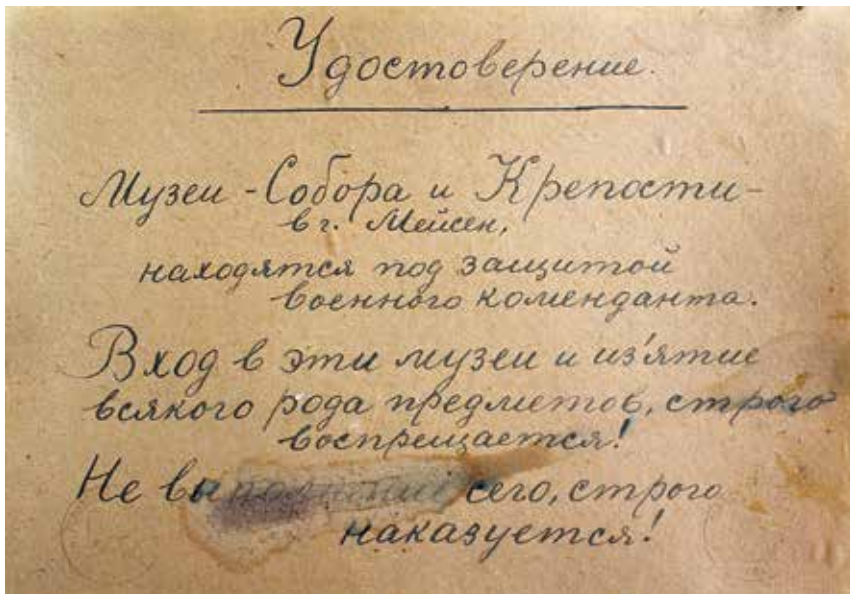 Удостоверение.
Музеи - Собора и Крепости -
в г. Мейсен,
находятся под защитой
военного коменданта.
Вход в эти музеи и из'ятие
всякого рода предметов, строго
воспрещается!
Не выполнение сего, строго
наказуется!